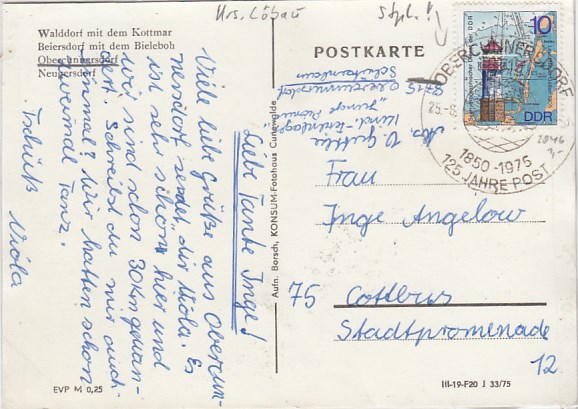 Krs. Löbau
Stpl.!
Walddorf mit dem Kottmar
Beiersdorf mit dem Bieleboh
Obercunnersdorf
Neugersdorf
POSTKARTE
10
DDR
OBERCUNNERSDORF
1850-1975
125 JAHRE POST
Liebe Tante Inge!
Viele liebe Grüße aus Obercun-
nersdorf sendet dir Viola. Es
ist sehr schön hier und
wir sind schon 30km gewan-
dert. Schreibst du mir auch
einmal? Wir hatten schon
zweimal Tanz.
Tschüß
Viola
Aufn. Borsch, KONSUM-Fotohaus Cunewalde
8715
Obercunnersdorf
"Junge Pioniere"
Frau
Inge Angelow
75 Cottbus
Stadtpromenade
12
EVP M 0,25
III-19-F20 J 33/75